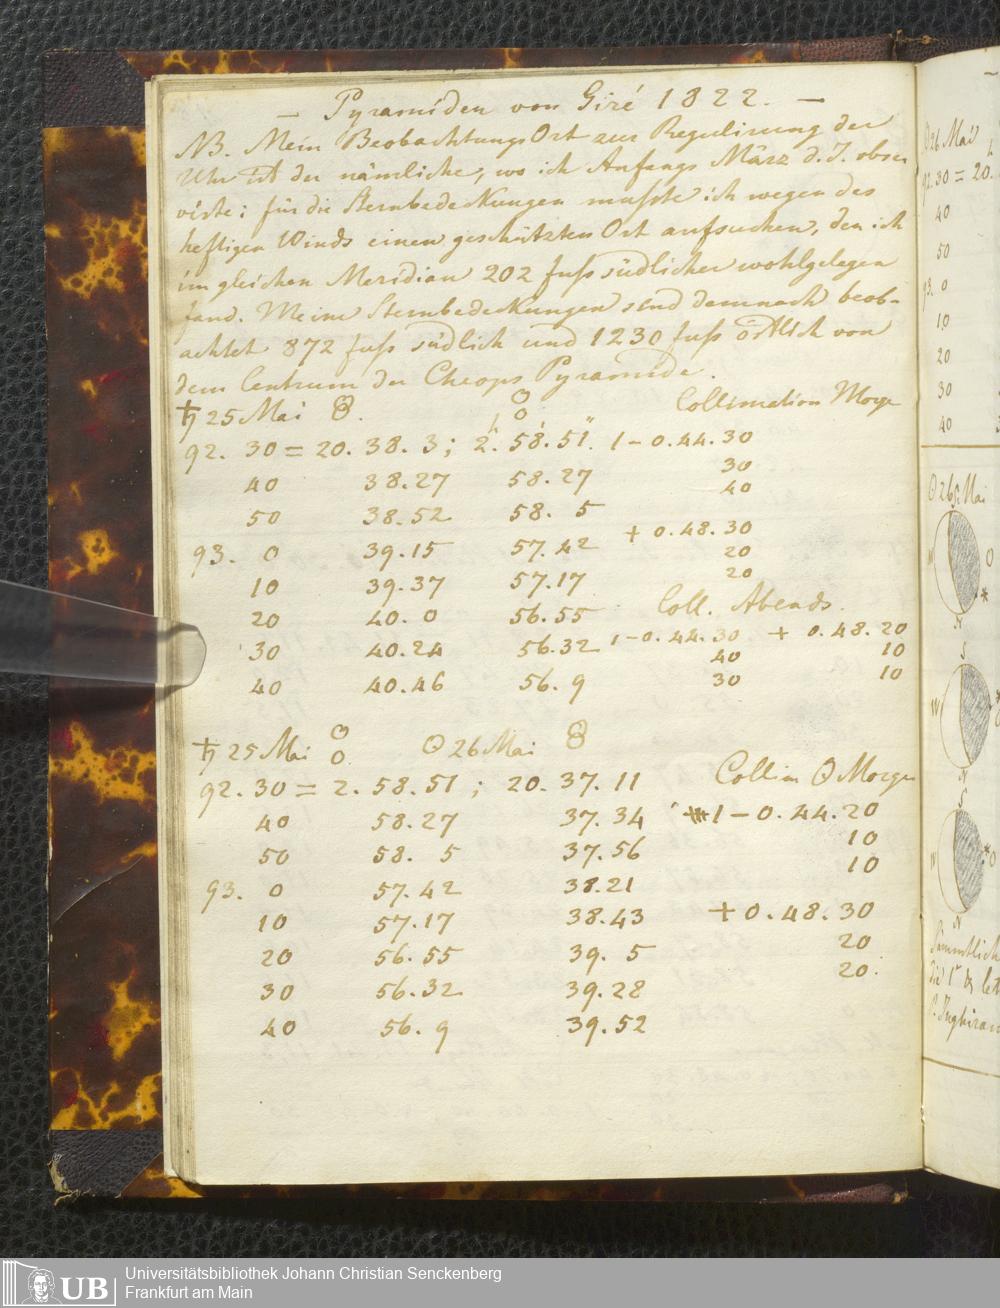 — Pyramiden von Gizé 1822. —
NB. Mein Beobachtungs Ort zur Regulirung der
Uhr ist der nämliche, wo ich Anfangs März d. J. obser
virte; für die Sternbedeckungen mußte ich wegen des
heftigen Winds einen geschützten Ort aufsuchen, den ich
im gleichen Meridian 202 fuß südlicher wohlgelegen
fand. Meine Sternbedeckungen sind demnach beob-
achtet 872 fuß südlich und 1230 fuß östlich von
dem Centrum der Cheops Pyramide.
♄ 25 Mai Collimation Morge
92. 30 = 20. 38. 3; 2. 58. 51. 1 – 0. 44. 30
40 38. 27 58. 27 30
50 38. 52 58. 5 40
93. 0 39. 15 57. 42 + 0. 48. 30
10 39. 37 57. 17 20
20 40. 0 56. 55 20
Coll. Abends.
30 40. 24 56. 32 1 – 0. 44. 30 + 0. 48. 20
40 10
40 40. 46 56. 9 30 10
♄ 25 Mai ☉ 26 Mai
Collim ☉ Morge
92. 30 = 2. 58. 51; 20. 37. 11
40 58. 27 37. 34 1 – 0. 44. 20
50 58. 5 37. 56 10
10
93. 0 57. 42 38. 21
10 57. 17 38. 43 + 0. 48. 30
20 56. 55 39. 5 20
30 56. 32 39. 28 20.
40 56. 9 39. 52
☉ 26 Mai
92. 30 = 20.
40
50
93. 0
10
20
30
40
☉ 26 Mai
S
W
N
S
W
N
S
W
N
Sämmtlich
die 1r & let
UB
Universitätsbibliothek Johann Christian Senckenberg
Frankfurt am Main